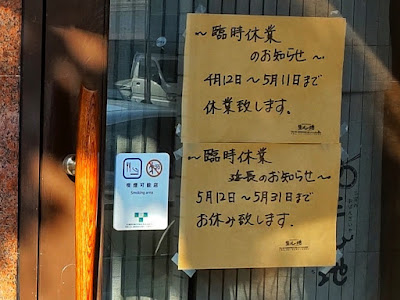 ～臨時休業
のお知らせ～
4月12日～5月11日まで
休業致します.
～臨時休業
延長のお知らせ～
5月12日～5月31日まで
お休み致します.
喫煙可能店
Smoking area
池